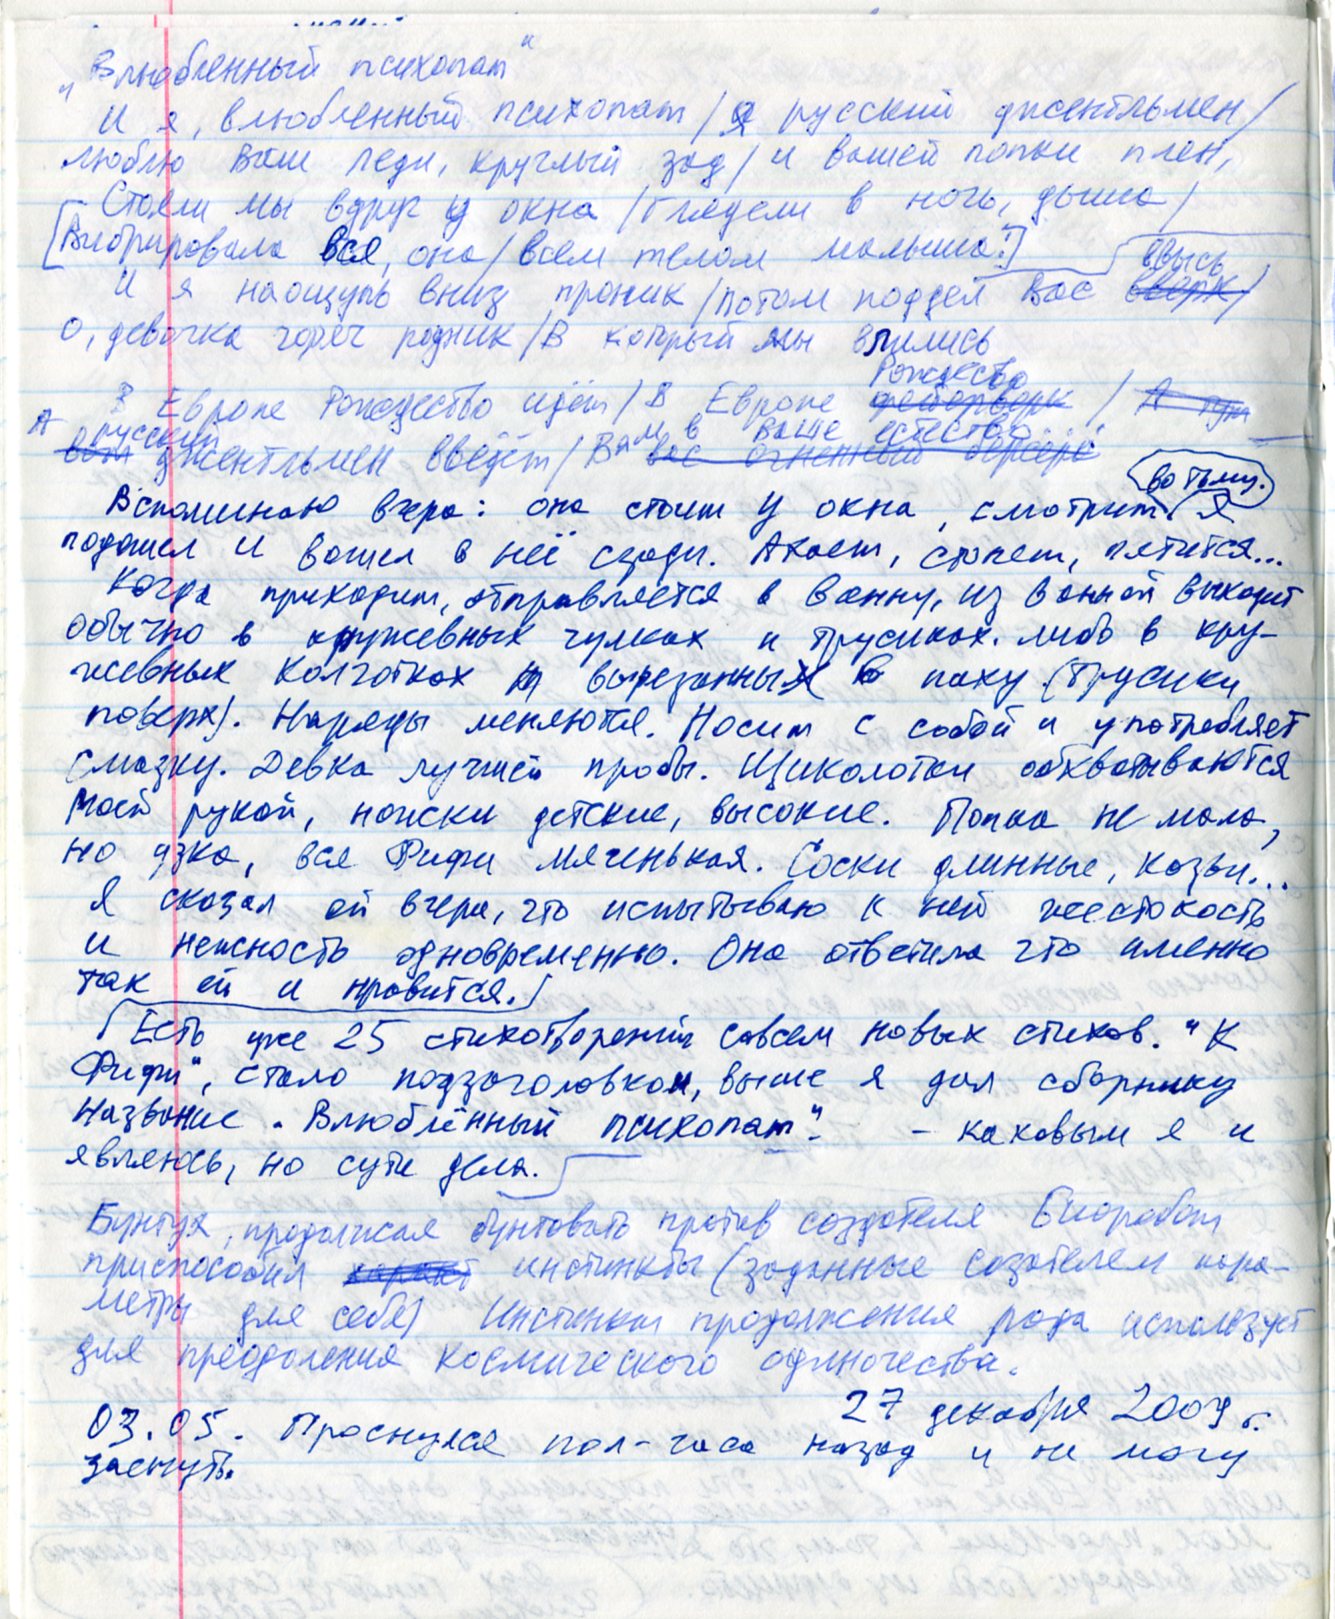 „Влюбленный психопат“
И я, влюбленный психопат / Я русский джентльмен /
люблю Ваш леди, круглый зад / и вашей попки плен,
Стояли мы вдруг у окна / Глядели в ночь, дыша /
[Вибрировала вся, она / всем телом малыша!]
ввысь
И я наощупь вниз проник / потом поддел Вас вверх /
О, девочка горяч родник / В который мы влились
Рождество
В Европе Рождество идёт / В Европе фейерверк / А тут
русский Вам в Ваше естество...
А вот джентльмен введёт / Вас огненный
во тьму.
Вспоминаю вчера: она стоит у окна, смотрит / Я
подошел и вошел в неё сзади. Ахает, стонет, пятится...
Когда приходит, отправляется в ванну, из ванной выходит
обычно в кружевных чулках и трусиках. либо в кру-
жевных колготках вырезанных в паху (Трусики
поверх). Наряды меняются. Носит с собой и употребляет
смазку. Девка лучшей пробы. Щиколотки обхватываются
моей рукой, ножки детские, высокие. Попка не мала,
но узка, вся Фифи мягенькая. Соски длинные, козьи...
Я сказал ей вчера, что испытываю к ней жестокость
и нежность одновременно. Она ответила что именно
так ей и нравится.
[Есть уже 25 стихотворений совсем новых стихов. "К
Фифи", стало подзаголовком, выше я дал сборнику
Название "Влюблённый психопат". – каковым я и
являюсь, по сути дела.
Бунтуя, продолжая бунтовать против создателя Биоробот
приспособил инстинкты (заданные создателем пара-
метры для себя) Инстинкт продолжения рода использует
для преодоления космического одиночества.
27 декабря 2009 г.
03.05. Проснулся пол-часа назад и не могу
заснуть.